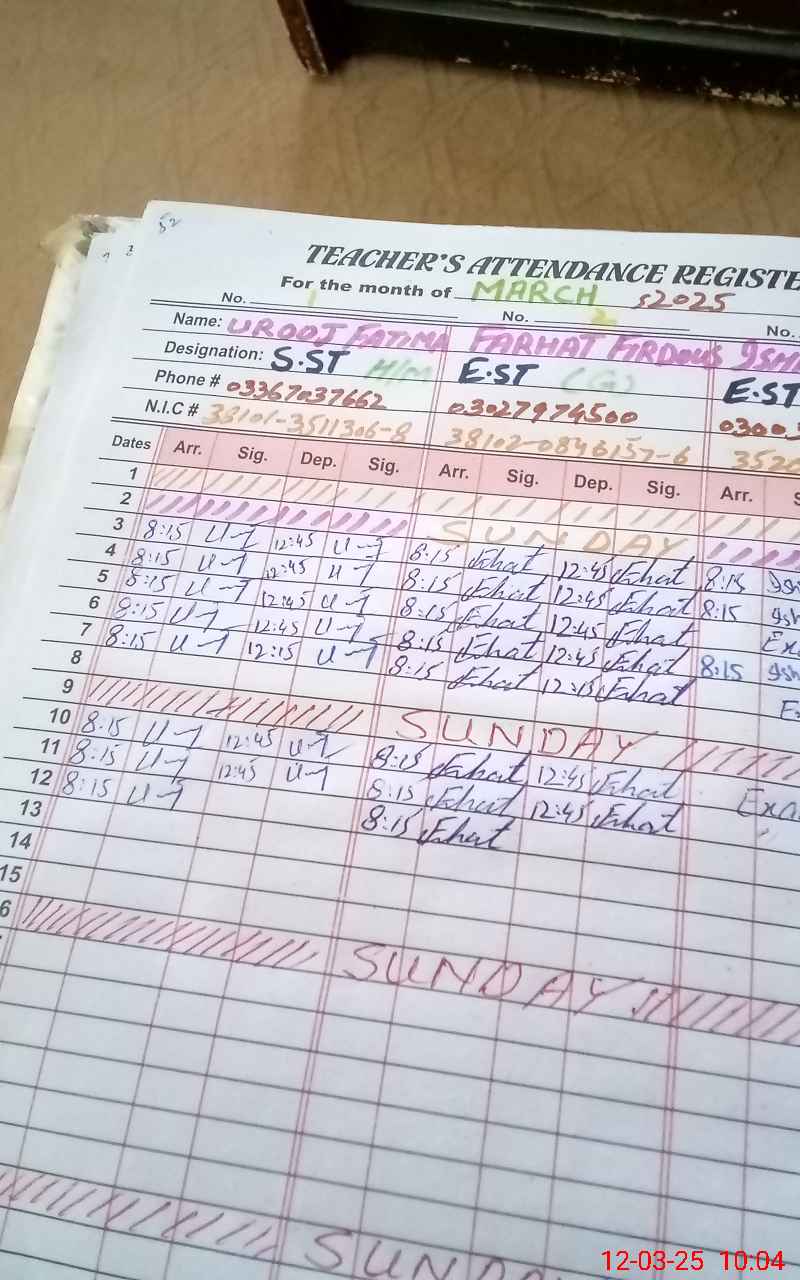 TEACHER'S ATTENDANCE REGISTE
For the month of MARCH s2025
No. 1 No. 2 No.
Name: UROOJ FATIMA FARHAT FIRDOUS ISH
Designation: S.ST H/M E.ST (G) E.ST
Phone # 03367037662 03027974500 0300
N.I.C # 38101-3511306-8 38102-0846157-6 3520
Dates Arr. Sig. Dep. Sig. Arr. Sig. Dep. Sig. Arr. S
1
2 SUNDAY
3 8:15 U-J 12:45 U-J 8:15 Frhat 12:45 Frhat 8:15 Ish
4 8:15 U-J 12:45 U-J 8:15 Frhat 12:45 Frhat 8:15 Ish
5 8:15 U-J 12:45 U-J 8:15 Frhat 12:45 Frhat
6 8:15 U-J 12:45 U-J 8:15 Frhat 12:45 Frhat 8:15 Ish
7 8:15 U-J 12:15 U-J 8:15 Frhat 12:15 Frhat
8
9 SUNDAY
10 8:15 U-J 12:45 U-J 8:15 Frhat 12:45 Frhat
11 8:15 U-J 12:45 U-J 8:15 Frhat 12:45 Frhat
12 8:15 U-J 8:15 Frhat
13
14
15
6 SUNDAY
SUNDA
12-03-25 10:04